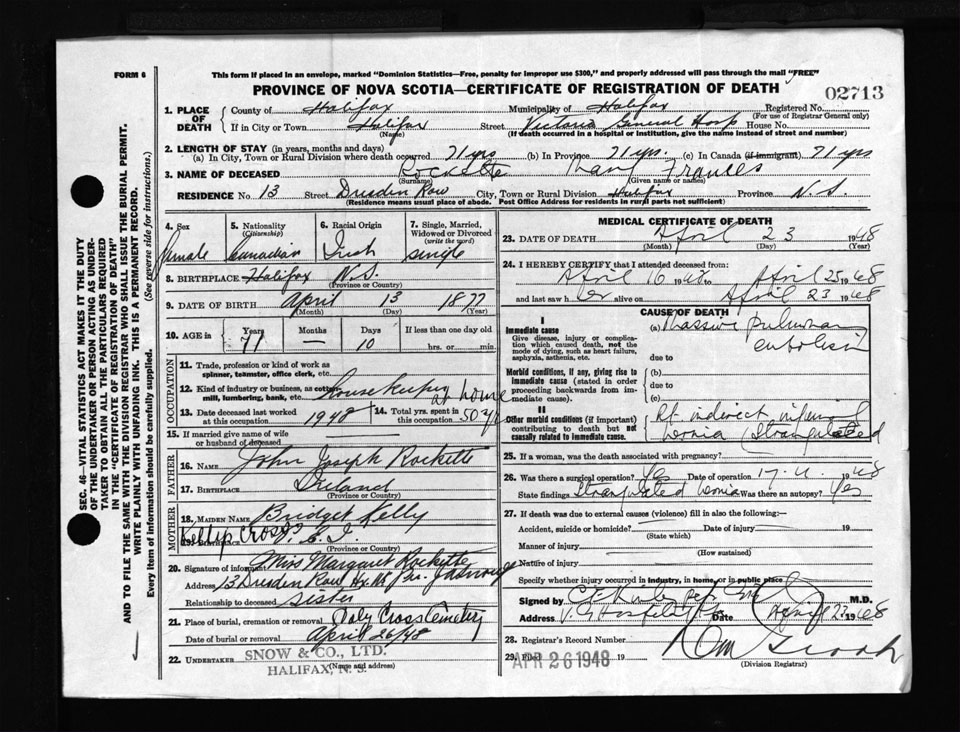 FORM 6
This form if placed in an envelope, marked "Dominion Statistics—Free, penalty for improper use $300," and properly addressed will pass through the mail "FREE"
PROVINCE OF NOVA SCOTIA—CERTIFICATE OF REGISTRATION OF DEATH
02713
1. PLACE OF DEATH County of Halifax Municipality of Halifax Registered No.
(For use of Registrar General only)
If in City or Town Halifax Street Victoria General Hosp House No.
(Name) (If death occurred in a hospital or institution, give the name instead of street and number)
2. LENGTH OF STAY (in years, months and days)
(a) In City, Town or Rural Division where death occurred 71 yrs (b) In Province 71 yrs. (c) In Canada (if immigrant) 71 yrs
3. NAME OF DECEASED Rockette Mary Frances
(Surname) (Given name or names)
RESIDENCE No. 13 Street Dresden Row City, Town or Rural Division Halifax Province N.S.
(Residence means usual place of abode. Post Office Address for residents in rural parts not sufficient)
4. Sex female
5. Nationality (Citizenship) Canadian
6. Racial Origin Irish
7. Single, Married, Widowed or Divorced (write the word) single
8. BIRTHPLACE Halifax N.S.
(Province or Country)
9. DATE OF BIRTH April 13 1877
(Month) (Day) (Year)
10. AGE in Years 71 Months — Days 10 If less than one day old
hrs. or min.
OCCUPATION
11. Trade, profession or kind of work as spinner, teamster, office clerk, etc.
12. Kind of industry or business, as cotton mill, lumbering, bank, etc. Housekeeping at home
13. Date deceased last worked at this occupation 1948
14. Total yrs. spent in this occupation 50 yrs
15. If married give name of wife or husband of deceased
FATHER
16. NAME John Joseph Rockette
17. BIRTHPLACE Ireland
(Province or Country)
MOTHER
18. MAIDEN NAME Bridget Kelly
19. BIRTHPLACE Kellys Cross P.E.I.
(Province or Country)
20. Signature of informant Miss Margaret Rockette
Address 13 Dresden Row
Relationship to deceased sister
21. Place of burial, cremation or removal Holy Cross Cemetery
Date of burial or removal April 26/48
22. UNDERTAKER SNOW & CO., LTD.
(Name and address)
HALIFAX, N. S.
MEDICAL CERTIFICATE OF DEATH
23. DATE OF DEATH April 23 1948
(Month) (Day) (Year)
24. I HEREBY CERTIFY that I attended deceased from:
April 16 1948 to April 23 1948
and last saw her alive on April 23 1948
CAUSE OF DEATH
I
Immediate cause
Give disease, injury or complication which caused death, not the mode of dying, such as heart failure, asphyxia, asthenia, etc.
(a) Massive pulmonary embolism
due to
Morbid conditions, if any, giving rise to immediate cause (stated in order proceeding backwards from immediate cause).
(b)
due to
(c)
II
Other morbid conditions (if important) contributing to death but not causally related to immediate cause.
Rt indirect inguinal hernia (strangulated
25. If a woman, was the death associated with pregnancy?
26. Was there a surgical operation? Yes Date of operation 17-4 1948
State findings Strangulated hernia Was there an autopsy? Yes
27. If death was due to external causes (violence) fill in also the following:—
Accident, suicide or homicide? Date of injury 19
(State which)
Manner of injury
(How sustained)
Nature of injury
Specify whether injury occurred in industry, in home, or in public place
Signed by M.D.
Address Date April 23 1948
28. Registrar's Record Number
29. Filed APR 26 1948 19
(Division Registrar)
SEC. 46—VITAL STATISTICS ACT MAKES IT THE DUTY
OF THE UNDERTAKER OR PERSON ACTING AS UNDER-
TAKER TO OBTAIN ALL THE PARTICULARS REQUIRED
IN THE "CERTIFICATE OF REGISTRATION OF DEATH"
AND TO FILE THE SAME WITH THE DIVISION REGISTRAR WHO SHALL ISSUE THE BURIAL PERMIT.
WRITE PLAINLY WITH UNFADING INK. THIS IS A PERMANENT RECORD.
Every item of Information should be carefully supplied. (See reverse side for instructions.)